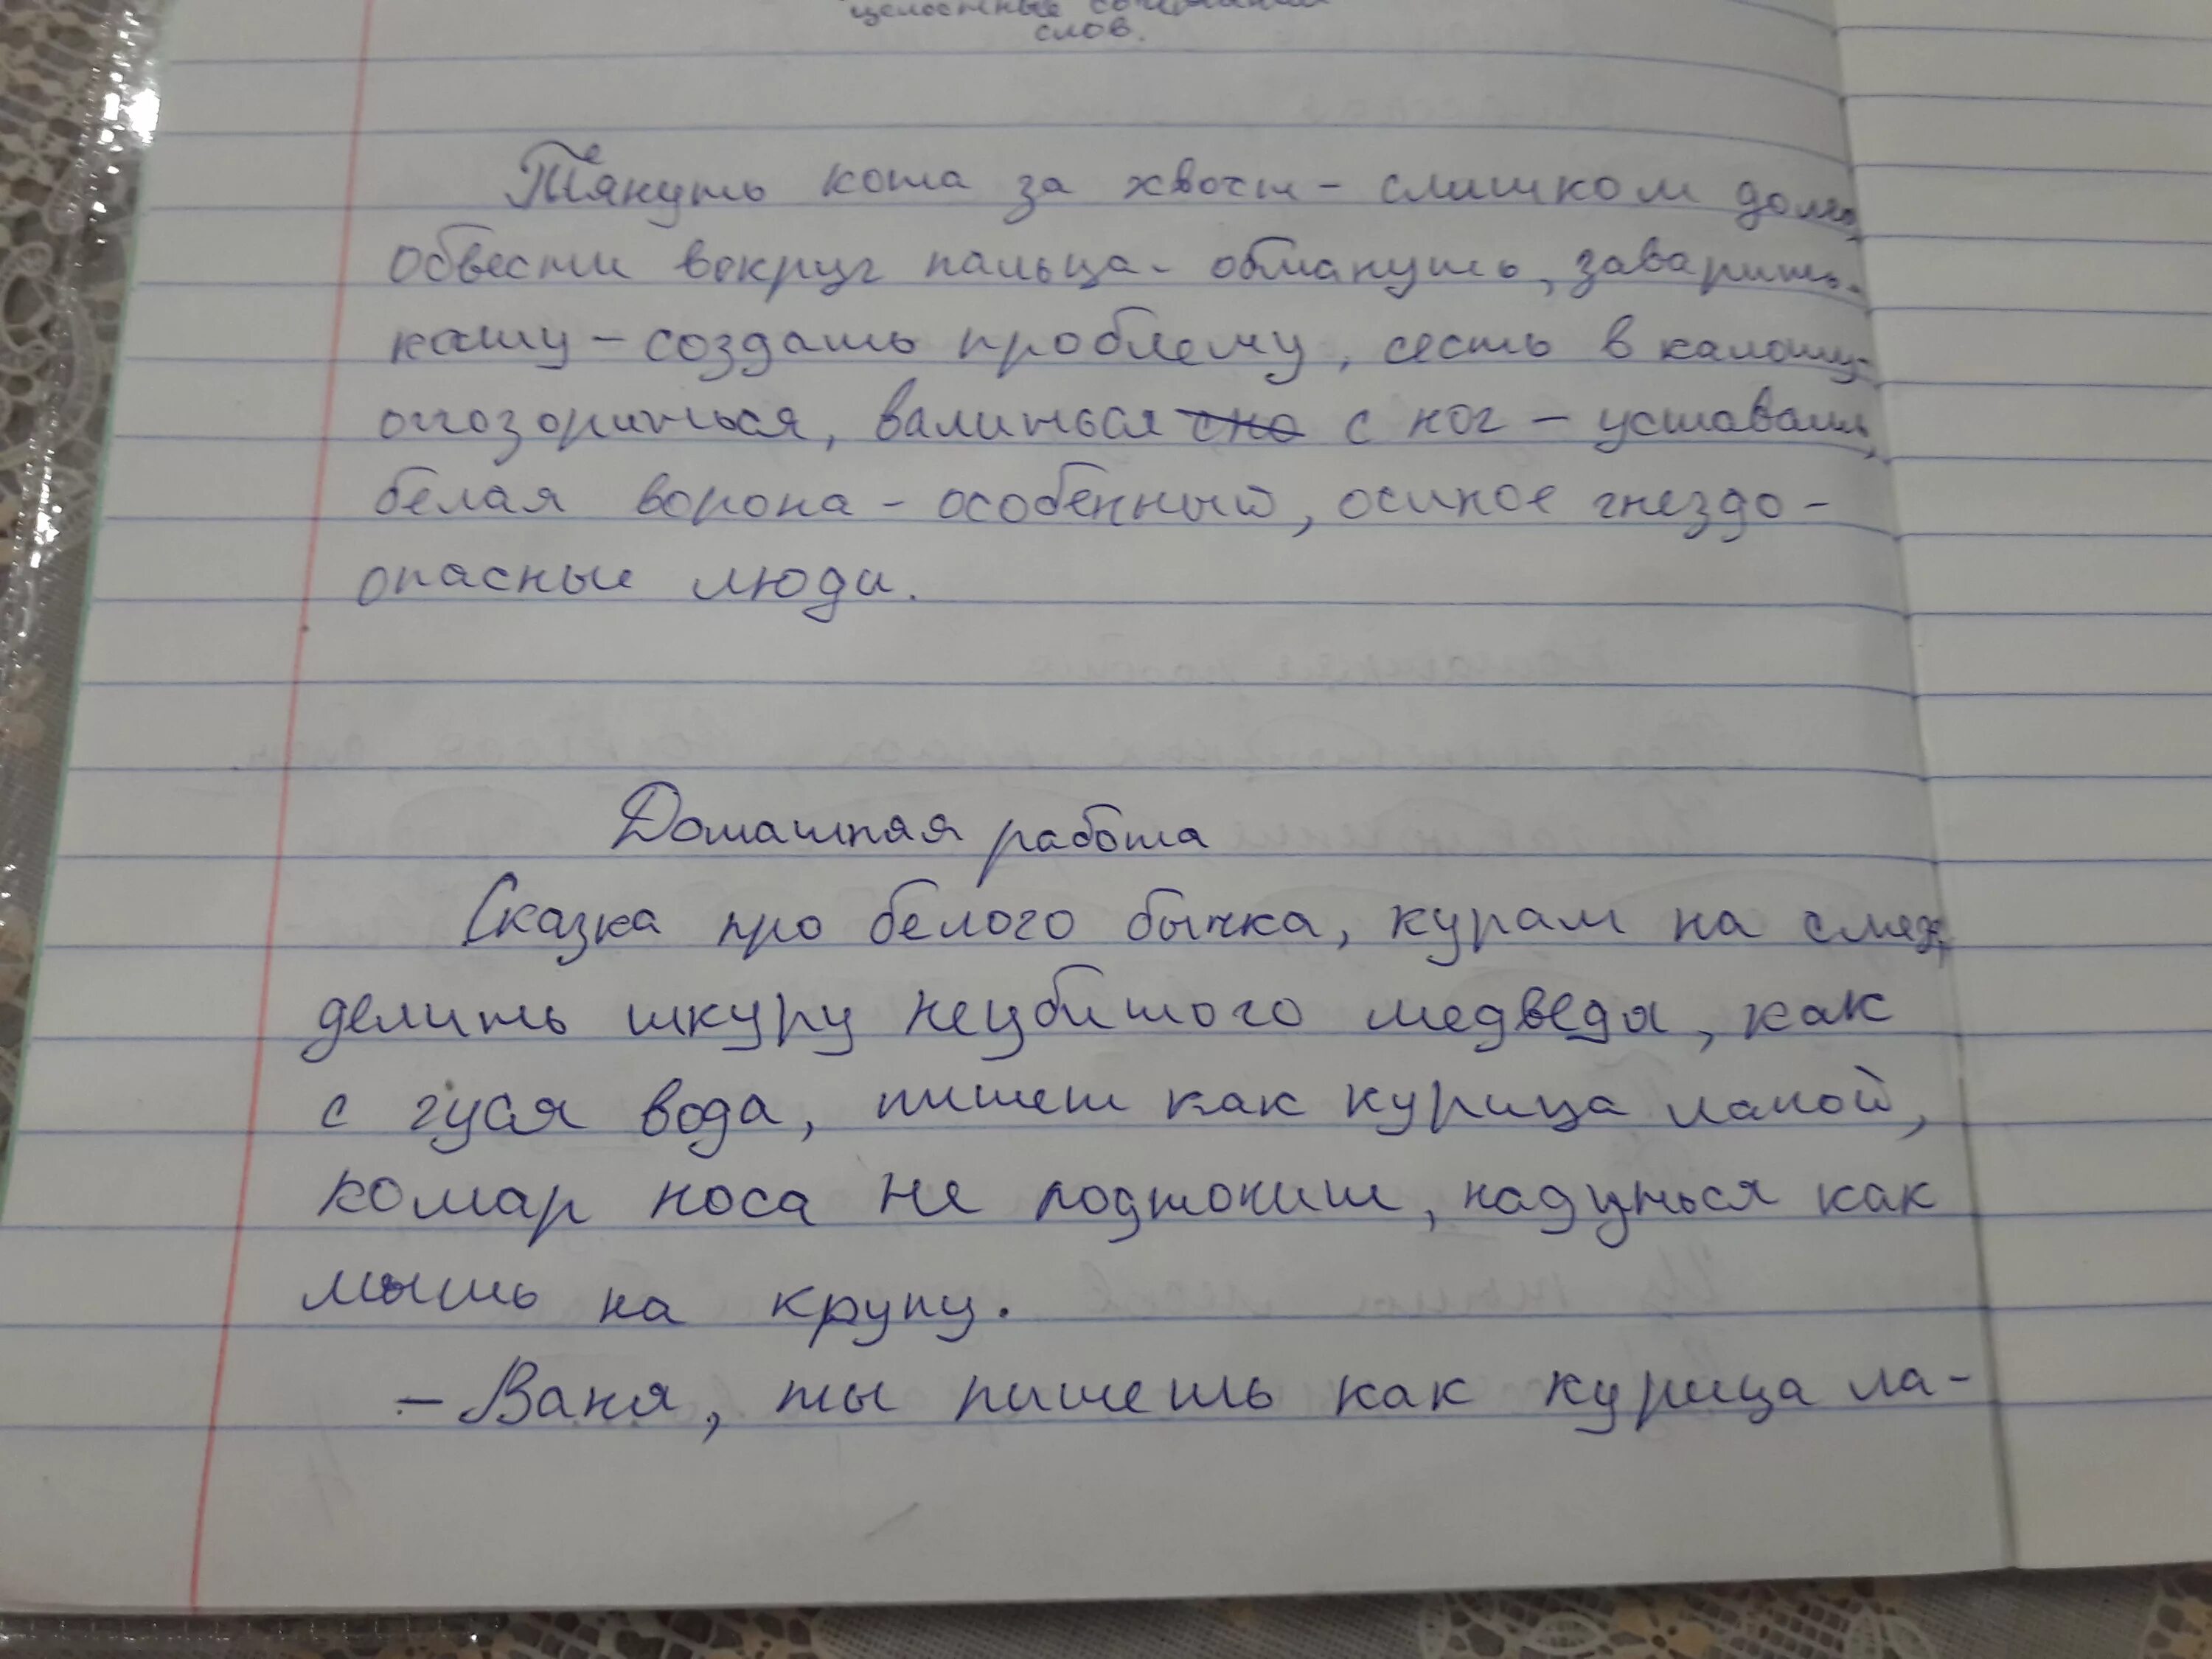 целостные сочетания
слов.
Тянуть кота за хвост - слишком долго,
обвести вокруг пальца - обмануть, заварить
кашу - создать проблему, сесть в калошу -
опозориться, валиться сно с ног - уставать,
белая ворона - особенный, осиное гнездо -
опасные люди.
Домашняя работа
Сказка про белого бычка, курам на смех,
делить шкуру неубитого медведя, как
с гуся вода, пишет как курица лапой,
комар носа не подточит, надуться как
мышь на крупу.
- Ваня, ты пишешь как курица ла-